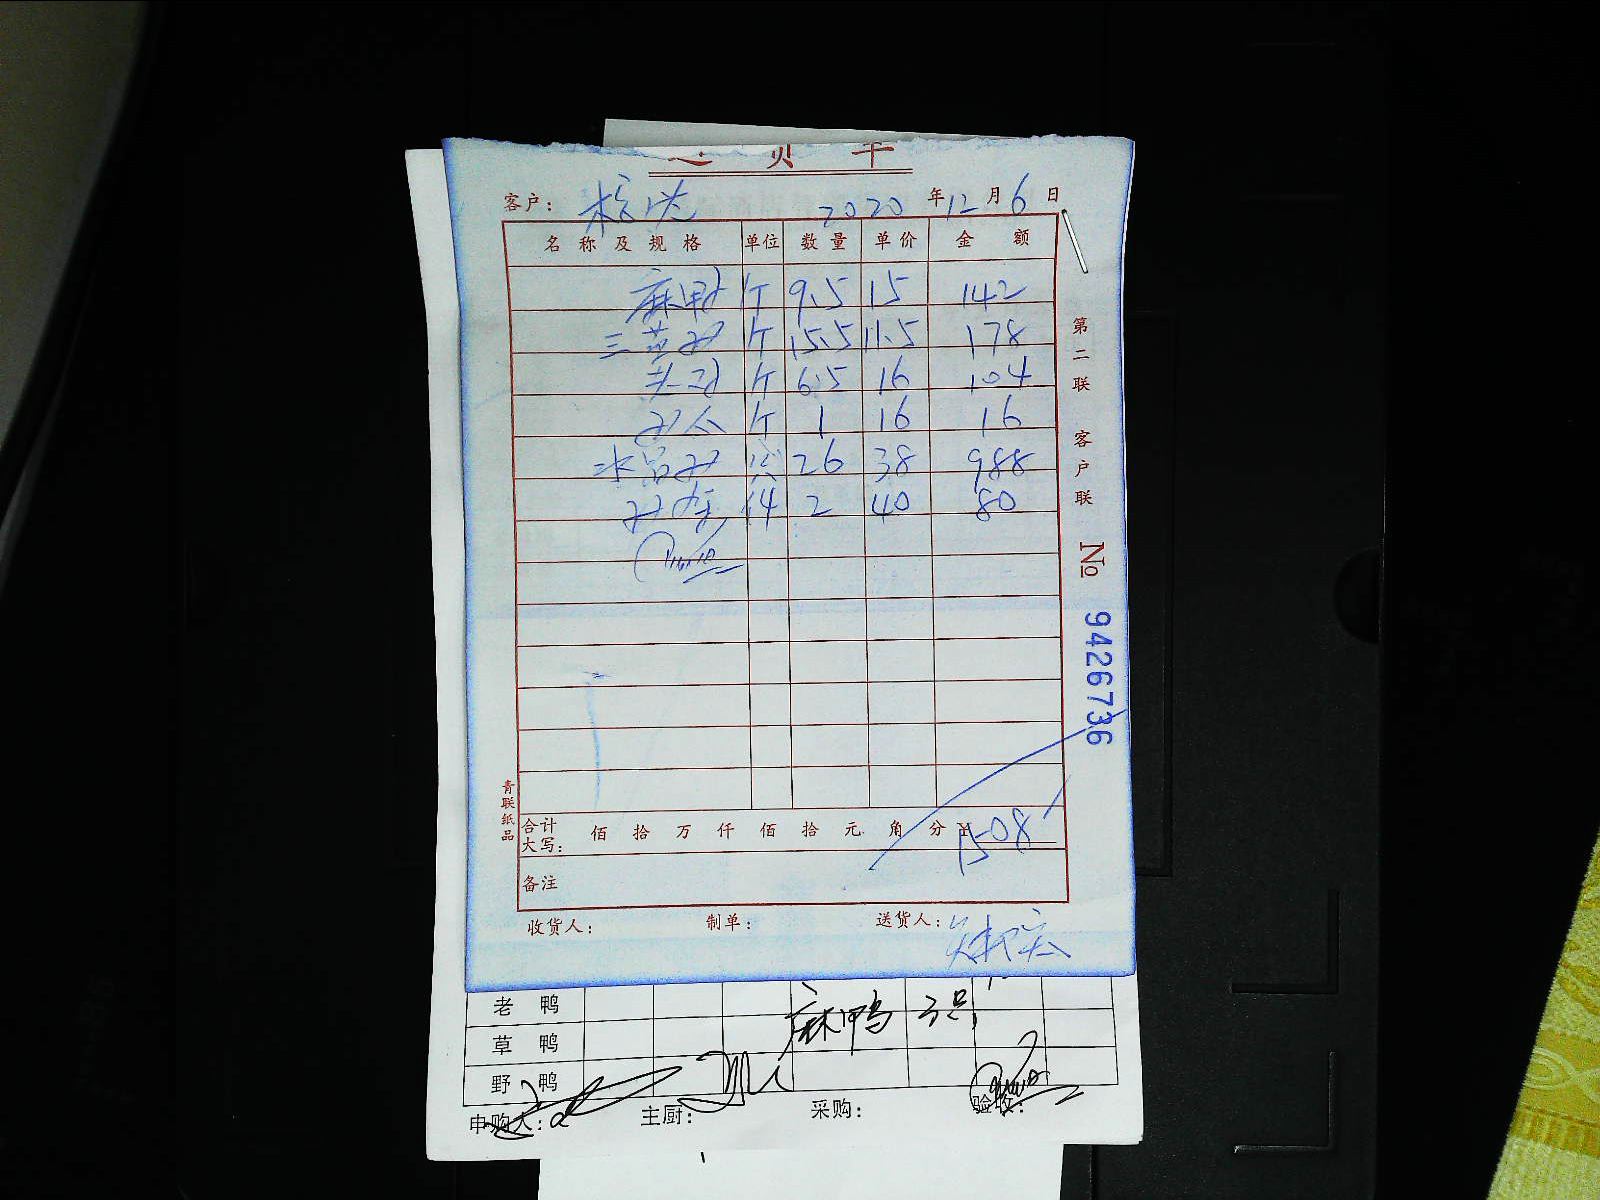 送货单
客户： 2020年12月6日
名称及规格 单位 数量 单价 金额
麻鸭 斤 9.5 15 142
三黄鸡 斤 15.5 11.5 178
斤 6.5 16 104
斤 1 16 16
鸡 只 26 38 988
2 40 80
第二联 客户联
No 9426736
青联纸品
合计大写： 佰 拾 万 仟 佰 拾 元 角 分 ¥ 1508
备注
收货人： 制单： 送货人：
老鸭
草鸭 麻鸭 3只
野鸭
申购人： 主厨： 采购： 验收：